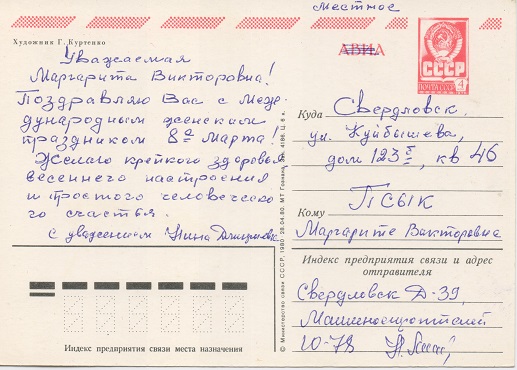 Местное
Художник Г. Куртенко
АВИА
ПОЧТА СССР
4
Уважаемая
Маргарита Викторовна!
Поздравляю Вас с Меж-
дународным женским
праздником 8е Марта!
Желаю крепкого здоровья
весеннего настроения
и простого человеческо
го счастья.
С уважением Нина
Куда Свердловск.
ул. Куйбышева,
дом 123 кв 46
Кому ПСЫК
Маргарите Викторовне
Индекс предприятия связи и адрес
отправителя
Свердловск Д-39,
Машиностроителей
10-78
Индекс предприятия связи места назначения
© Министерство связи СССР, 1980 28.04.80. МТ Гознака.